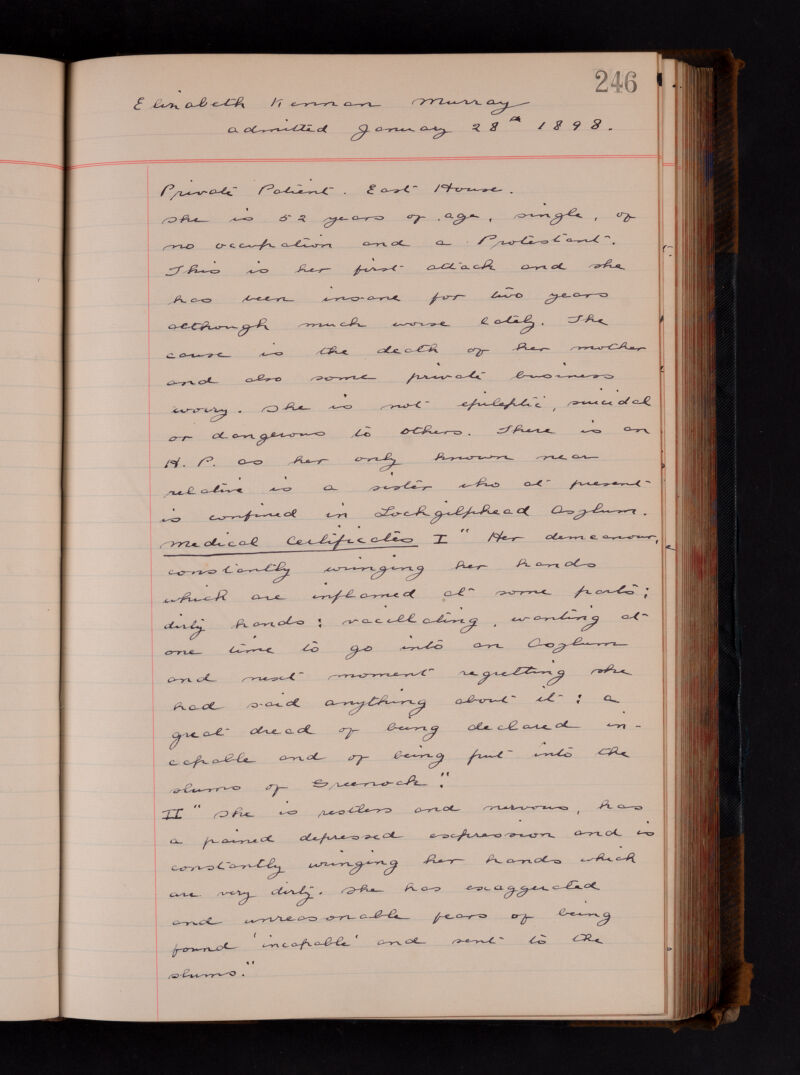 246
Elizabeth Kennan Murray
admitted January 28th 1898.
Private Patient. East House.
She is 52 years of age, single, of
no occupation and a Protestant.
This is her first attack and she
has been insane for two years
although much worse lately. The
cause is the death of her mother
and also some private business
worry. She is not epileptic, suicidal
or dangerous to others. There is an
H. P. as her only known near
relative is a sister who at present
is confined in Lochgilphead Asylum.
Medical Certificates I " Her demeanour,
constantly wringing her hands
which are inflamed at some parts;
dirty hands: vacillating, wanting at
one time to go into an Asylum
and next moment regretting she
had said anything about it: a
great dread of being declared in-
capable and of being put into the
slums of Greenock."
II " She is restless and nervous, has
a pained depressed expression and is
constantly wringing her hands which
are very dirty. She has exaggerated
and unreasonable fears of being
found 'incapable' and sent to the
slums."